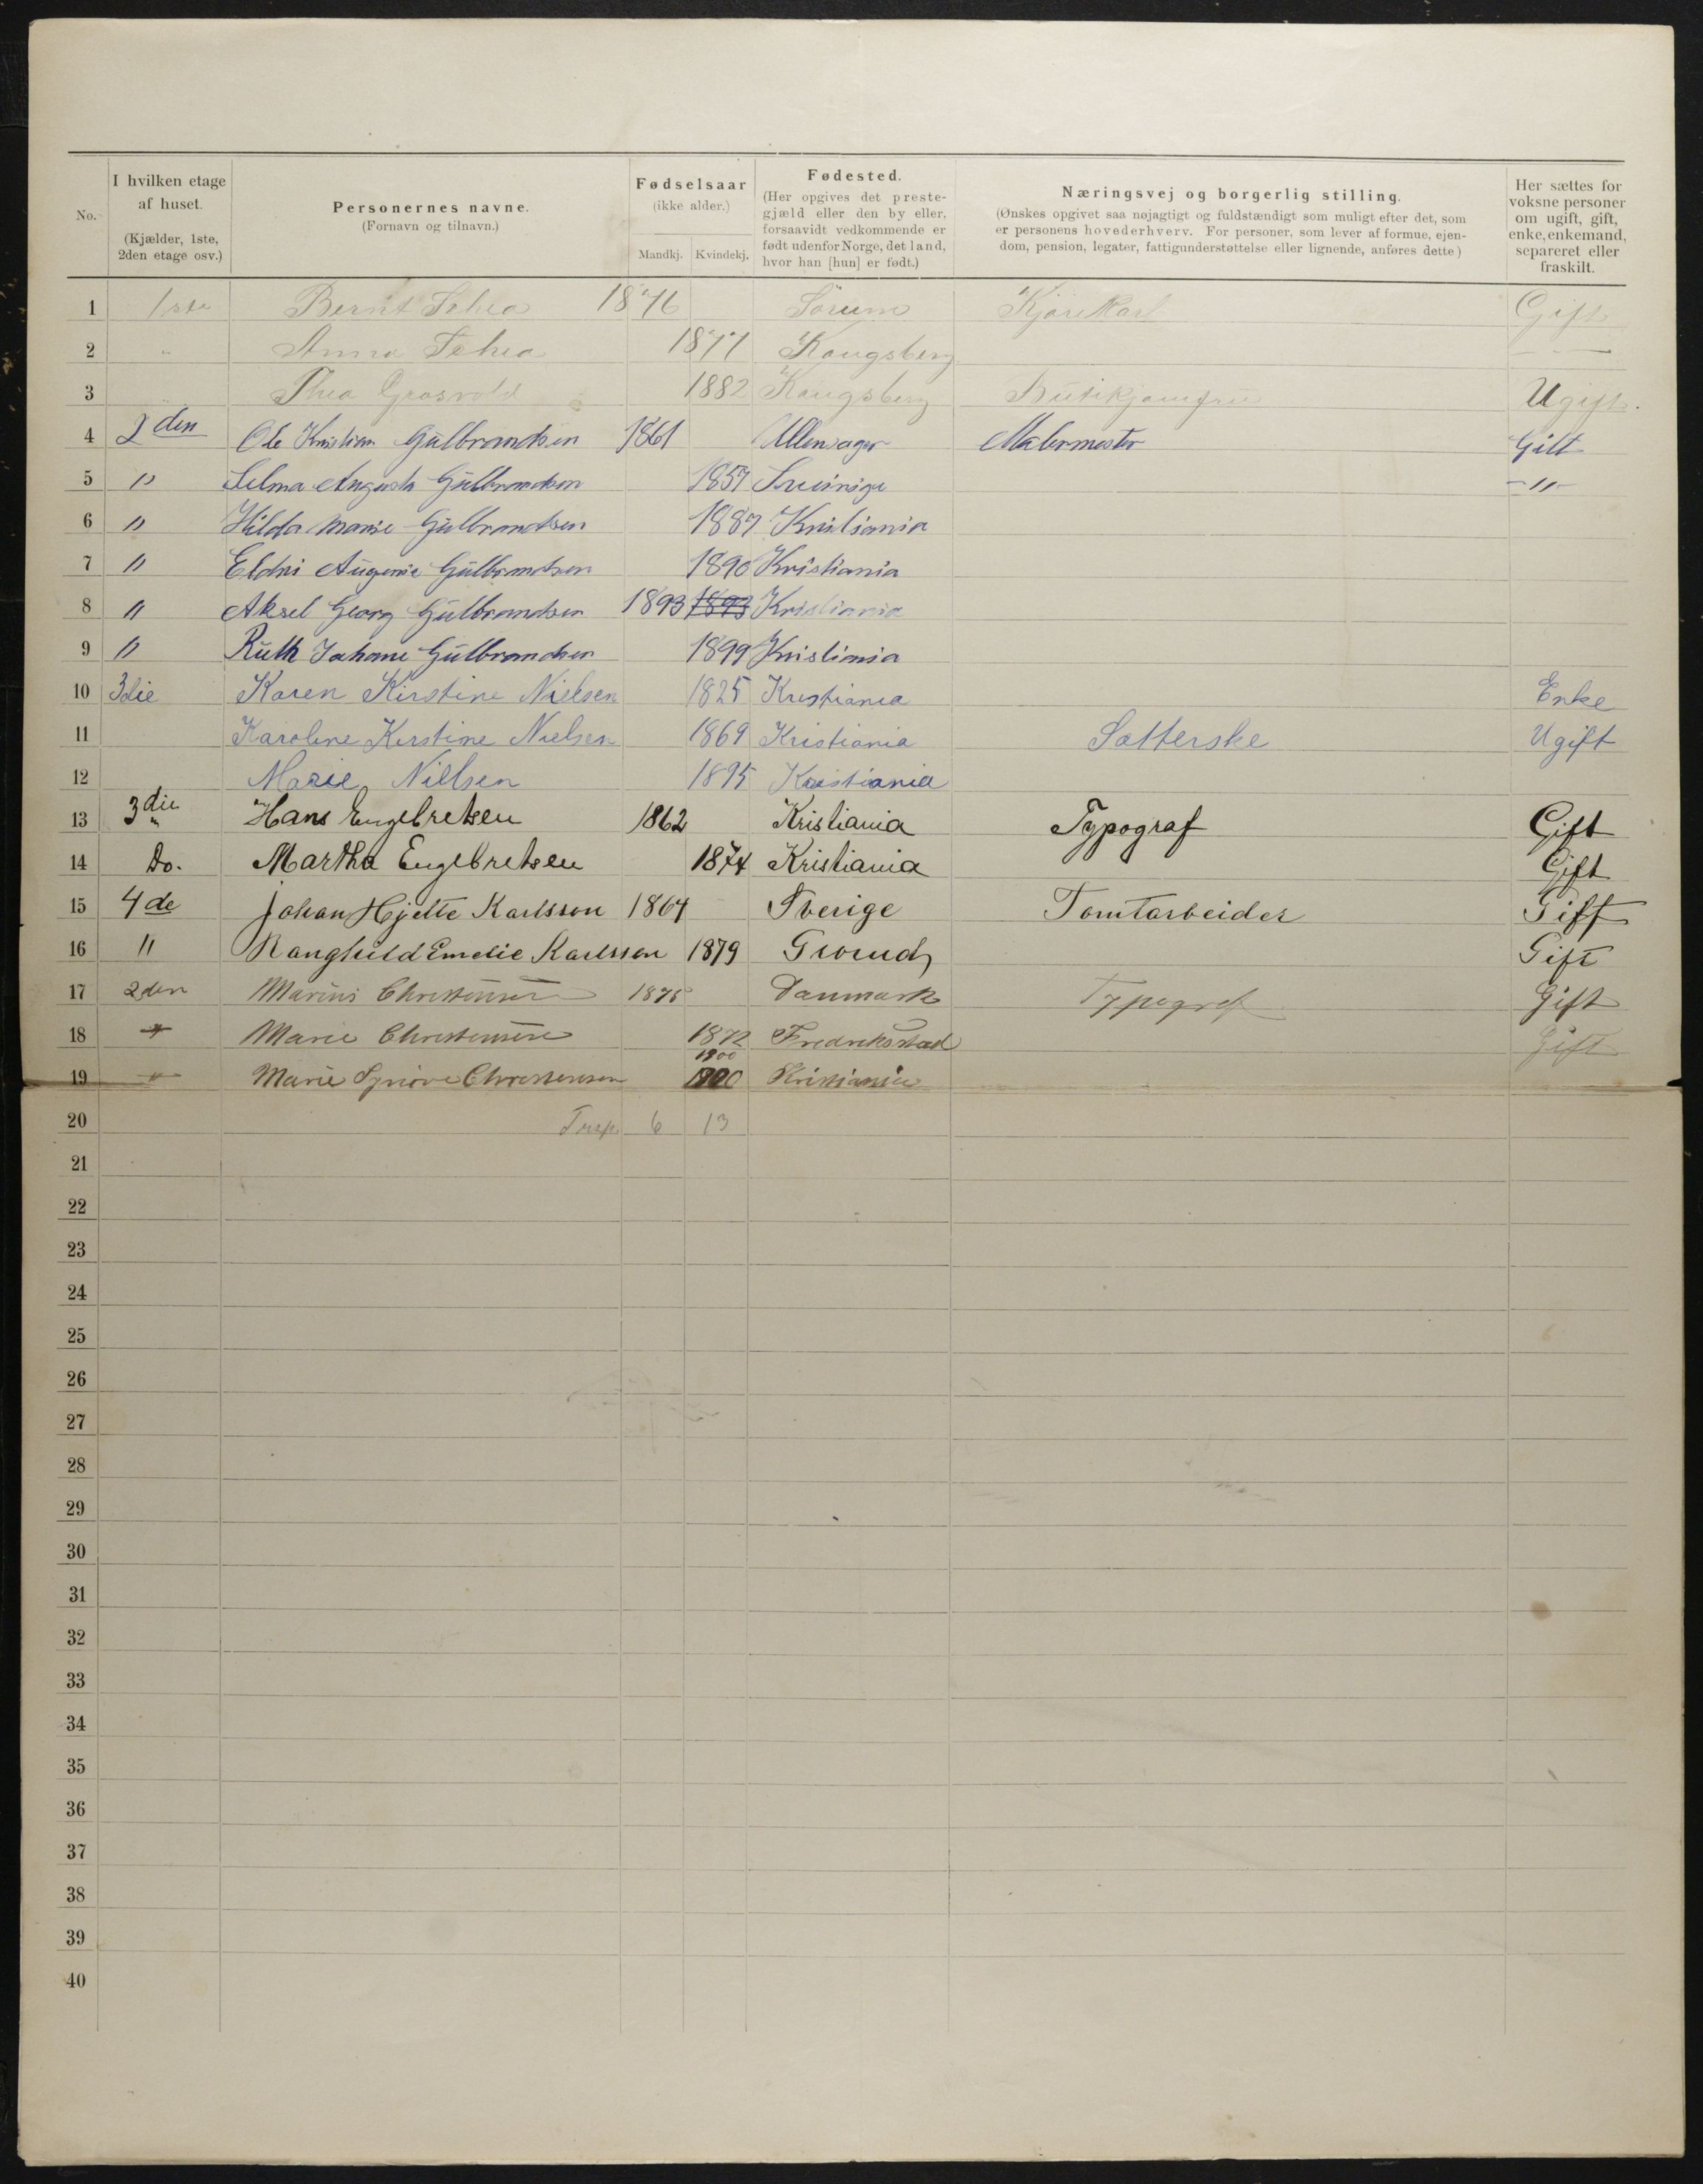 No.
I hvilken etage
af huset.
(Kjælder, 1ste,
2den etage osv.)
Personernes navne.
(Fornavn og tilnavn.)
Fødselsaar
(ikke alder.)
Mandkj. Kvindekj.
Fødested.
(Her opgives det preste-
gjæld eller den by eller,
forsaavidt vedkommende er
født udenfor Norge, det land,
hvor han [hun] er født.)
Næringsvej og borgerlig stilling.
(Ønskes opgivet saa nøjagtigt og fuldstændigt som muligt efter det, som
er personens hovederhverv. For personer, som lever af formue, ejen-
dom, pension, legater, fattigunderstøttelse eller lignende, anføres dette)
Her sættes for
voksne personer
om ugift, gift,
enke, enkemand,
separeret eller
fraskilt.
1 1ste Bernt Schea 1876 Sørum Kjørekarl Gift
2 " Anna Schea 1877 Kongsberg - " -
3 Thea Grosvold 1882 Kongsberg Butikjomfru Ugift.
4 2den Ole Kristian Gulbrandsen 1861 Ullensager Malermester Gift
5 " Selma Augusta Gulbrandsen 1857 -"-
6 " Hilda Marie Gulbrandsen 1887 Kristiania
7 " Eldri Augenie Gulbrandsen 1890 Kristiania
8 " Aksel Georg Gulbrandsen 1893 1893 Kristiania
9 " Ruth Johane Gulbrandsen 1899 Kristiania
10 3die Karen Kirstine Nielsen 1825 Kristiania Enke
11 Karoline Kirstine Nielsen 1869 Kristiania Satterske Ugift
12 Marie Nillsen 1895 Kristiania
13 3die " Hans Engebretsen 1862 Kristiania Typograf Gift
14 Do. Martha Engebretsen 1874 Kristiania Gift
15 4de Johan Hjelte Karlsson 1864 Sverige Tomtarbeider Gift
16 " Ranghild Emelie Karlsson 1879 Grorud Gift
17 2den Marius Christensen 1875 Danmark Typograf Gift
18 " Marie Christensen 1872 Fredrikstad Gift
1900
19 " Marie Synøve Christensen 1900 Kristiania
20 6 13
21
22
23
24
25
26
27
28
29
30
31
32
33
34
35
36
37
38
39
40